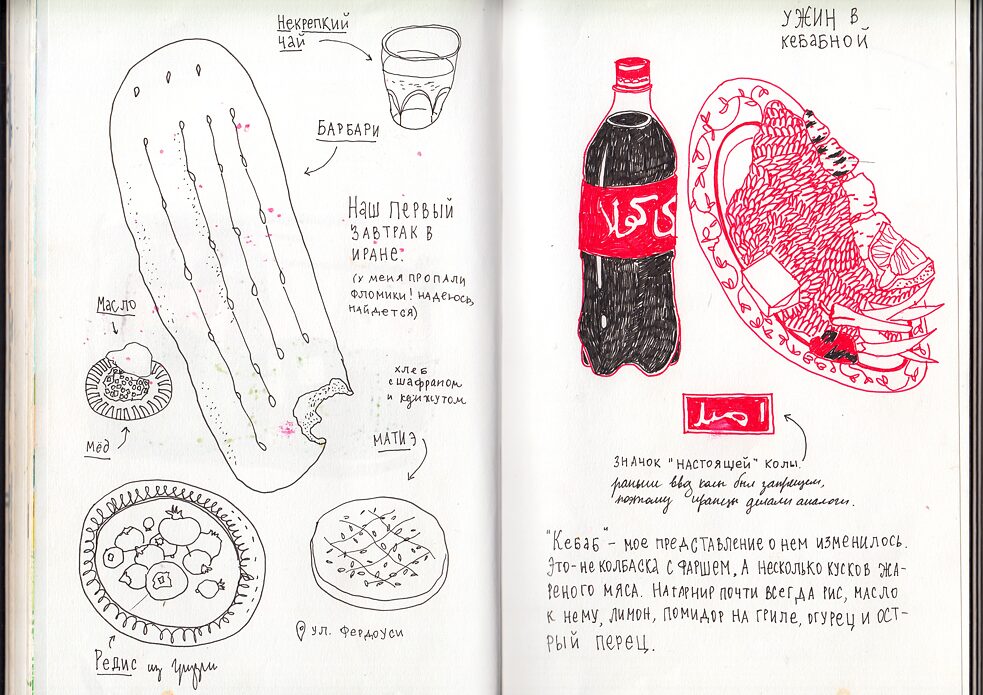 Некрепкий
чай
Барбари
Наш первый
завтрак в
Иране:
(у меня пропали
фломики! надеюсь,
найдется)
Масло
Мёд
хлеб
с шафраном
и кунжутом
МАТИЭ
ул. Фердоуси
Редис из Грузии
Ужин в
кебабной
کاکولا
اصل
значок "настоящей" колы.
раньше ввоз колы был запрещен,
поэтому иранцы делали аналоги.
"Кебаб" - мое представление о нем изменилось.
Это - не колбаска с фаршем, а несколько кусков жа-
реного мяса. На гарнир почти всегда рис, масло
к нему, лимон, помидор на гриле, огурец и ост-
рый перец.